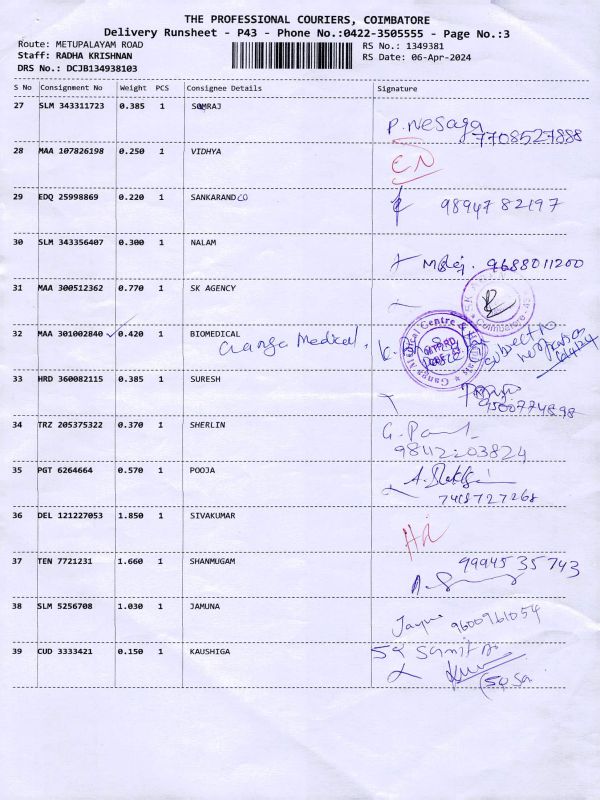 THE PROFESSIONAL COURIERS, COIMBATORE
Delivery Runsheet - P43 - Phone No.:0422-3505555 - Page No.:3
Route: METUPALAYAM ROAD
RS No.: 1349381
Staff: RADHA KRISHNAN
RS Date: 06-Apr-2024
DRS No.: DCJB134938103
S No Consignment No Weight PCS Consignee Details Signature
27 SLM 343311723 0.385 1 SOMRAJ
7708527888
28 MAA 107826198 0.250 1 VIDHYA
29 EDQ 25998869 0.220 1 SANKARAND CO
98947 82197
30 SLM 343356407 0.300 1 NALAM
9688011200
31 MAA 300512362 0.770 1 SK AGENCY
Coimbatore
32 MAA 301002840 0.420 1 BIOMEDICAL
Ganga Medical
Ganga Medical Centre &
Subject to
33 HRD 360082115 0.385 1 SURESH
9500774898
34 TRZ 205375322 0.370 1 SHERLIN
9842203824
35 PGT 6264664 0.570 1 POOJA
7418727268
36 DEL 121227053 1.850 1 SIVAKUMAR
37 TEN 7721231 1.660 1 SHANMUGAM
9994535743
38 SLM 5256708 1.030 1 JAMUNA
9600961054
39 CUD 3333421 0.150 1 KAUSHIGA